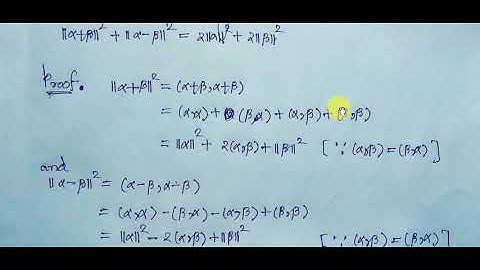 ||α+β||² + ||α-β||² = 2||α||² + 2||β||²
Proof. ||α+β||² = (α+β, α+β)
= (α,α) + (β,α) + (α,β) + (β,β)
= ||α||² + 2(α,β) + ||β||² [∵ (α,β) = (β,α)]
and
||α-β||² = (α-β, α-β)
= (α,α) - (β,α) - (α,β) + (β,β)
= ||α||² - 2(α,β) + ||β||² [∵ (α,β) = (β,α)]